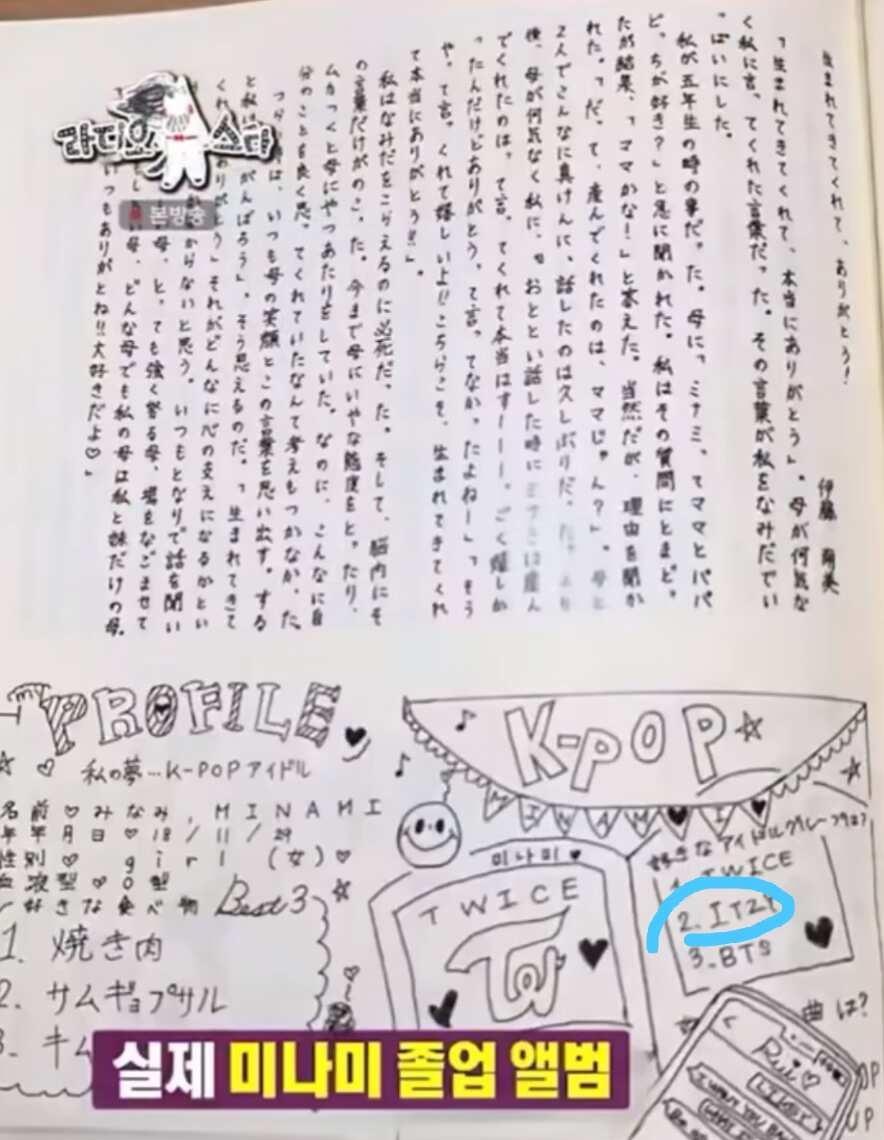 生まれてきてくれて、ありがとう!
伊藤
「生まれてきてくれて、本当にありがとう」。母が何気な
く私に言ってくれた言葉だった。その言葉が私をなみだでい
っぱいにした。
私が五年生の時の事だった。母に「ミナミってママとパパ
どっちが好き?」と急に聞かれた。私はその質問にとまどっ
たが結果、「ママかな!」と答えた。当然だが、理由を聞か
れた。「だって、産んでくれたのは、ママじゃん?」。母と
2人でこんなに真けんに、話したのは久しぶりだった。
後、母が何気なく私に、「おととい話した時にミナミは産ん
でくれたのはって言ってくれて本当はすーーーっごく嬉しか
ったんだけどありがとうって言ってなかったよねー」「そう
やって言ってくれて嬉しいよ!!こちらこそ、生まれてきてくれ
て本当にありがとう!!」。
私はなみだをこらえるのに必死だった。そして、脳内にそ
の言葉だけがのこった。今まで母にいやな態度をとったり、
ムカつくと母にやつあたりをしていた。なのに、こんなに自
分のことを良く思ってくれていたなんて考えもつかなかった。
いつも母の笑顔とこの言葉を思い出す。する
と私は がんばろう」。そう思えるのだ。「生まれてきて
くれ ありがとう」それがどんなに心の支えになるかとい
からないと思う。いつもとなりで話を聞い
母、とっても強く怒る母、場をなごませて
い母、どんな母でも私の母は私と妹だけの母。
いつもありがとね!!大好きだよ♡」
라디오스타
본방송
my PROFILE
私の夢…K-POPアイドル
名前♡みなみ, MINAMI
年月日♡18/11/29
性別♡girl(女)♡
血液型♡O型
好きな食べ物 Best3
1. 焼き肉
2. サムギョプサル
3. キム
K-POP
MINAMI
미나미♥
TWICE
TW
好きなアイドルグループは?
1. TWICE
2. ITZY
3. BTS
曲は?
Rui♡
UP
실제 미나미 졸업 앨범